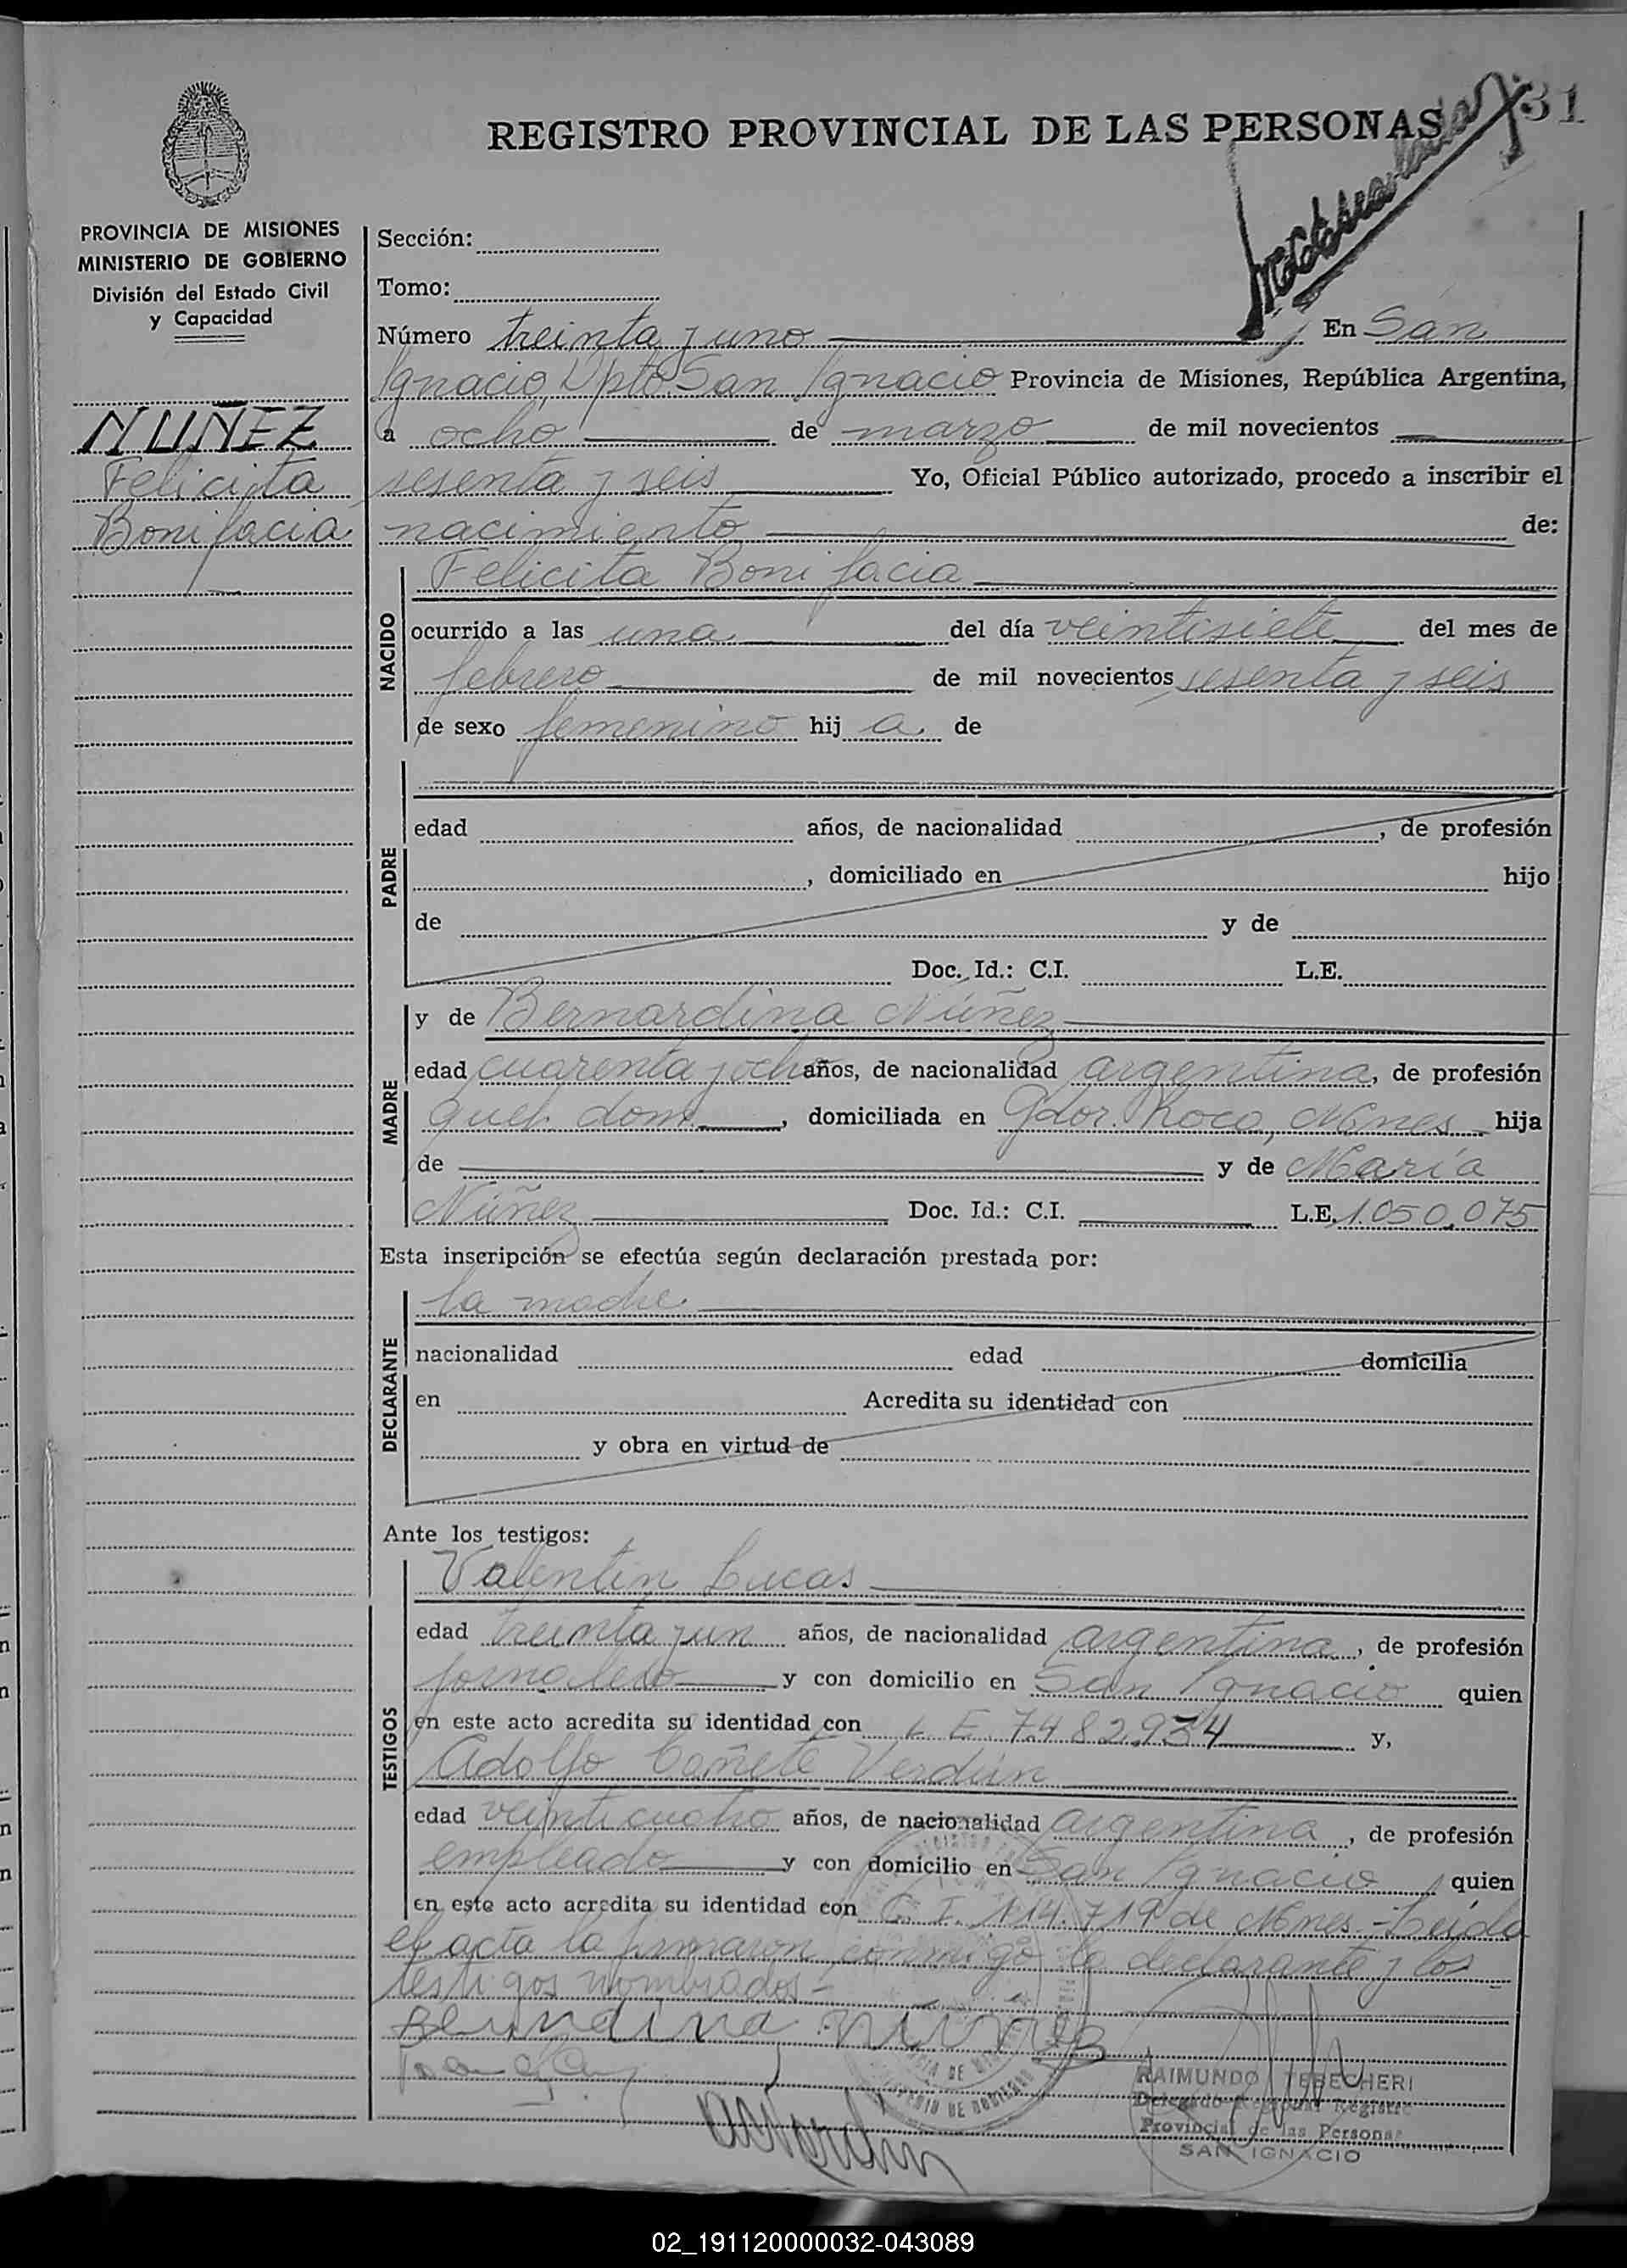 31
REGISTRO PROVINCIAL DE LAS PERSONAS
PROVINCIA DE MISIONES
MINISTERIO DE GOBIERNO
División del Estado Civil
y Capacidad
NUÑEZ
Felicita
Bonifacia
Sección:
Tomo:
Número treinta y uno En San
Ignacio, Dpto. San Ignacio Provincia de Misiones, República Argentina,
a ocho de marzo de mil novecientos
sesenta y seis Yo, Oficial Público autorizado, procedo a inscribir el
nacimiento de:
NACIDO
Felicita Bonifacia
ocurrido a las una del día veintisiete del mes de
febrero de mil novecientos sesenta y seis
de sexo femenino hij a de
PADRE
edad años, de nacionalidad , de profesión
, domiciliado en hijo
de y de
Doc. Id.: C.I. L.E.
MADRE
y de Bernardina Núñez
edad cuarenta y ocho años, de nacionalidad argentina, de profesión
queh. dom. , domiciliada en Gdor. Roca, Mnes hija
de y de María
Núñez Doc. Id.: C.I. L.E. 1.050.075
Esta inscripción se efectúa según declaración prestada por:
DECLARANTE
la madre.
nacionalidad edad domicilia
en Acredita su identidad con
y obra en virtud de
Ante los testigos:
TESTIGOS
Valentin Lucas
edad treinta y un años, de nacionalidad argentina, de profesión
jornalero y con domicilio en San Ignacio quien
en este acto acredita su identidad con L.E. 7.482.934 y,
Adolfo Cañete Verdún
edad veinticuatro años, de nacionalidad argentina, de profesión
empleado y con domicilio en San Ignacio quien
en este acto acredita su identidad con C.I. 114.719 de Mnes.- Leída
el acta la firmaron conmigo la declarante y los
testigos nombrados.-
RAIMUNDO TEBECHERI
Delegado Registro
Provincial de las Personas
SAN IGNACIO
02_191120000032-043089